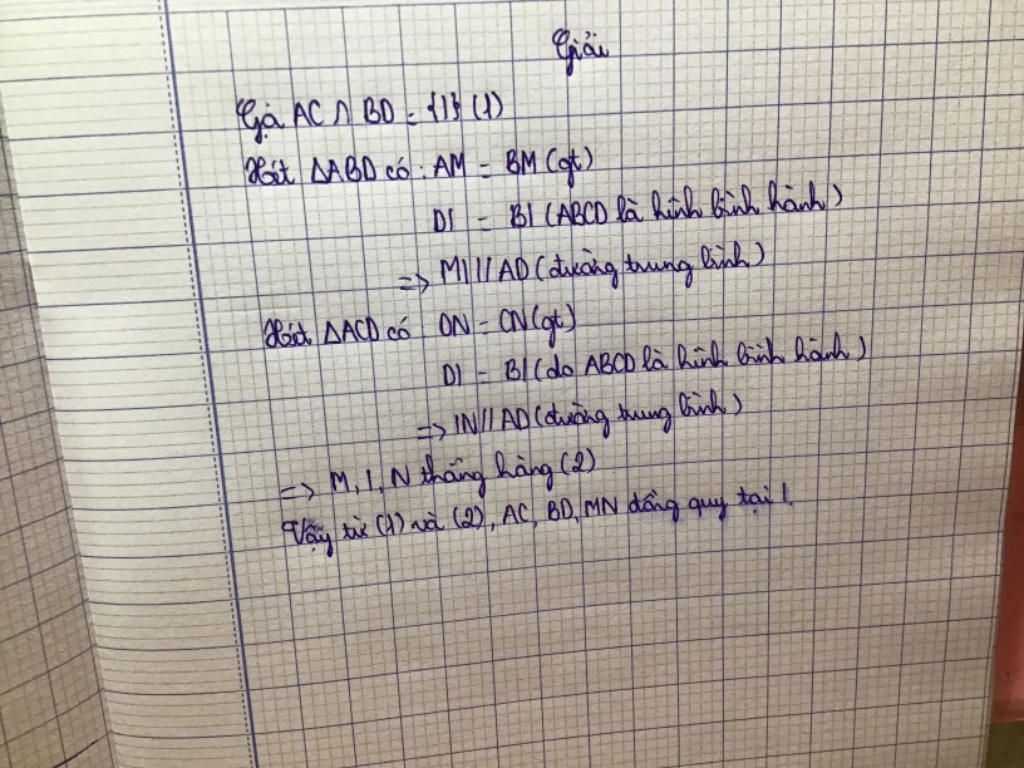 Giải
Gọi AC ∩ BD = {I} (1)
Xét ΔABD có: AM = BM (gt)
DI = BI (ABCD là hình bình hành)
=> MI // AD (đường trung bình)
Xét ΔACD có DN = CN (gt)
DI = BI (do ABCD là hình bình hành)
=> IN // AD (đường trung bình)
=> M, I, N thẳng hàng (2)
Vậy từ (1) và (2), AC, BD, MN đồng quy tại I.